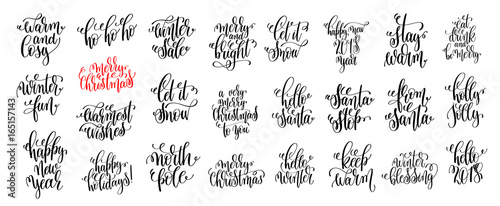 warm
and
cosy
ho ho ho
winter
sale
merry
and
bright
let it
snow
happy
new
2018
year
stay
warm
let
eat
drink
and
be merry
winter
fun
merry
christmas
let it
snow
a very
merry
christmas
to you
hello
santa
santa
stop
from
santa
holly
jolly
warmest
wishes
happy
new
year
happy
holidays!
north
pole
merry
christmas
hello
winter
keep
warm
winter
blessing
hello
2018
165157143